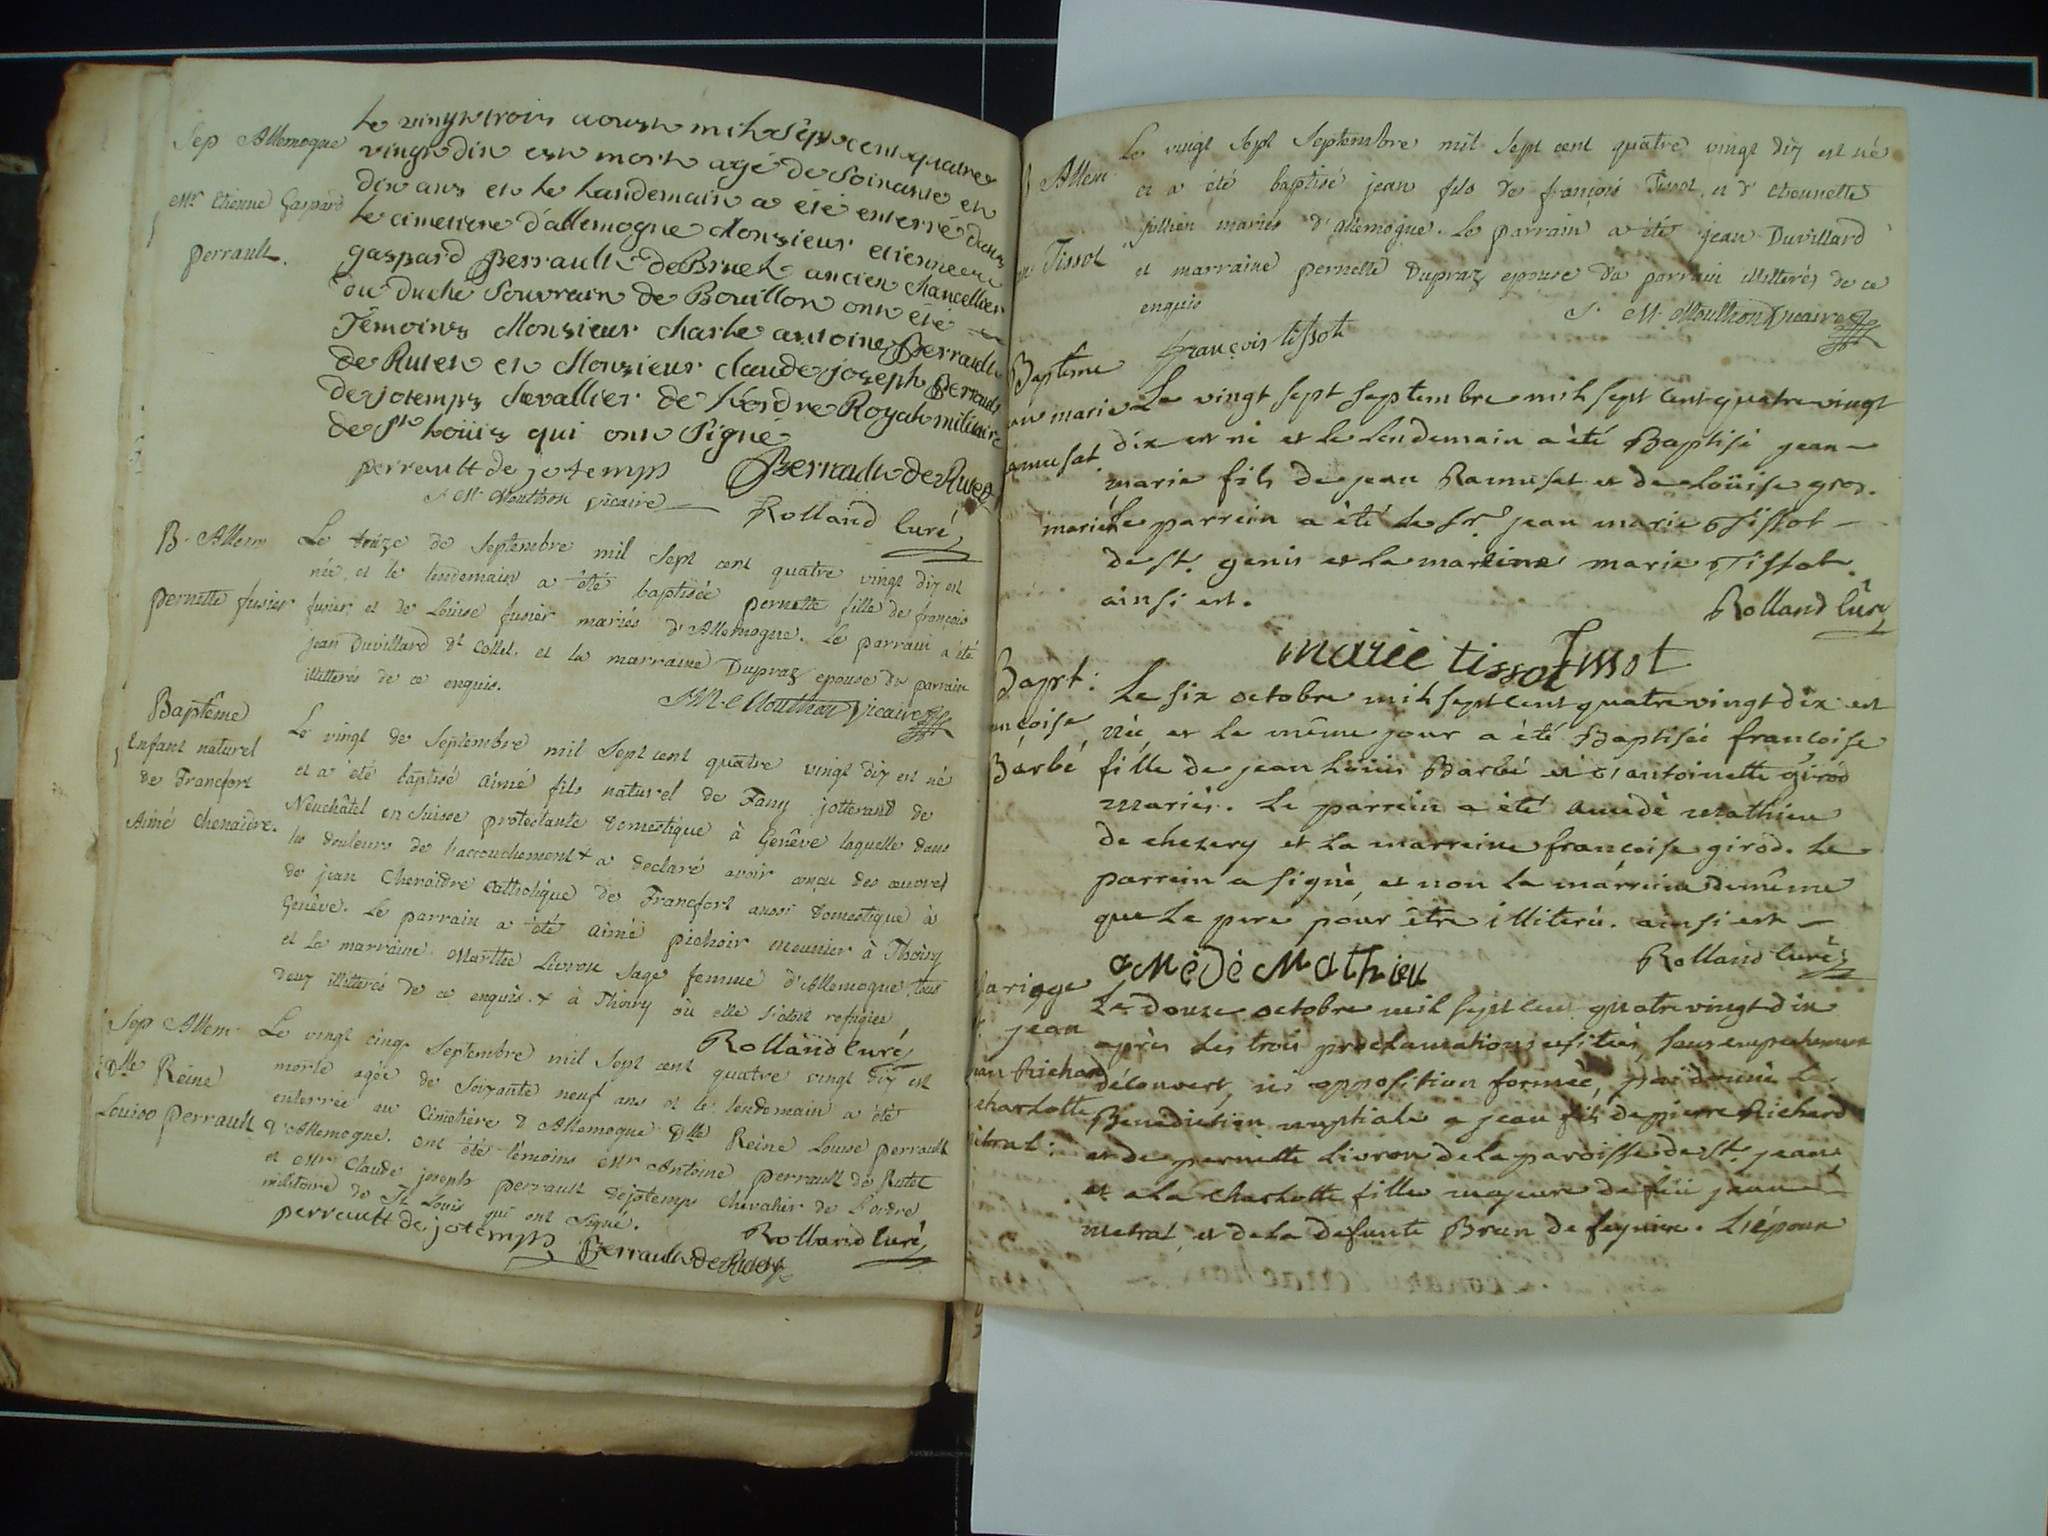 Sep Allemogne
Mr Etienne Gaspard
perrault.
Le vingt trois aoust mil sept cent quatre
vingt dix est mort agé de soixante et
dix ans et le landemain a été enterré dans
le cimetiere d'allemogne Monsieur etienne
gaspard Perrault de Bruel ancien chancellier
du duché Souvrain de Bouillon ont été
Témoins Monsieur charle antoine Perrault
de Rutet et Monsieur claude joseph Perrault
de jotemps chevallier de L'ordre Royal militaire
de St Loüis qui ont signé
perrault de jotemps Perrault de Rutet
J. M. Mouthon vicaire Rolland Curé
B. Allem
pernette fusier
Le treize de Septembre mil sept cent quatre vingt dix est
née et le lendemain a été baptisée pernette fille de françois
fusier et de Loüise fusier mariés d'Allemogne. Le parrain a été
jean Duvillard dt Collet. et la marraine Dupraz epouse du parrain
illitterés de ce enquis.
J. M. Mouthon Vicaire
Baptême
Enfant naturel
de Francfort
Aimé Chenaidre.
Le vingt de Septembre mil sept cent quatre vingt dix est né
et a été baptisé aimé fils naturel de Fany jotterand de
Neuchâtel en Suisse protestante domestique à Genêve laquelle dans
les douleurs de l'accouchement + a declaré avoir conçu des œuvres
de jean Chenaidre catholique de Francfort aussi domestique à
Genêve. Le parrain a été aimé pichoir meunier à Thoiry
et la marraine Marthe Livron sage femme d'Allemogne tous
deux illitterés de ce enquis. + à Thoiry où elle s'étoit refugiée
Rolland Curé
Sep Allem.
Dlle Reine
Louise Perrault
Le vingt cinq Septembre mil sept cent quatre vingt dix est
morte agée de soixante neuf ans et le lendemain a été
enterrée au Cimetière d'Allemogne Dlle Reine Louise perrault
d'Allemogne. ont étés témoins Mr Antoine perrault de Rutet
et Mr Claude joseph perrault dejotemps chevalier de L'ordre
militaire de St Louis qui ont signé.
perrault de jotemps Rolland Curé
Perrault de Rutet
Allem
Tissot
Le vingt sept Septembre mil sept cent quatre vingt dix est né
et a été baptisé jean fils de françois Tissot et d'etiennette
jullien mariés d'allemogne. Le parrain a été jean Duvillard
et marraine pernette Dupraz epouse du parrain illitterés de ce
enquis
J. M. Mouthon Vicaire
françois tissot
Baptême
marie
Ramusat
Le vingt sept septembre mil sept cent quatre vingt
dix est né et le lendemain a été Baptisé jean
marie fils de jean Ramusat et de Loüise gros.
mariés Le parrein a été le Sr. jean marie Tissot
de st. genis et la marreine marie Tissot.
ainsi est.
Rolland Curé
marie tissot Tissot
Bapt:
Barbé
Le six octobre mil sept cent quatre vingt dix est
née et le même jour a été Baptisée françoise
fille de jean Loüis Barbé et d'antoinette girod
mariés. Le parrein a été amedé mathieu
de chezery et la marreine françoise girod. Le
parrein a signé, et non la marreine de même
que le pere pour être illiteré. ainsi est
Rolland Curé
aMèdè MAthieu
ariage
jean
Richard
charlotte
Le douze octobre mil sept cent quatre vingt dix
après les trois proclamations usitées, sans empechement
découvert, ni opposition formée, j'ai donné la
Benediction nuptiale a jean fils de pierre Richard
et de pernette Livron de la paroisse de St. jean
et a la charlotte fille majeure de feü jean
metral, et de la defunte Brun de feynier. L'époux